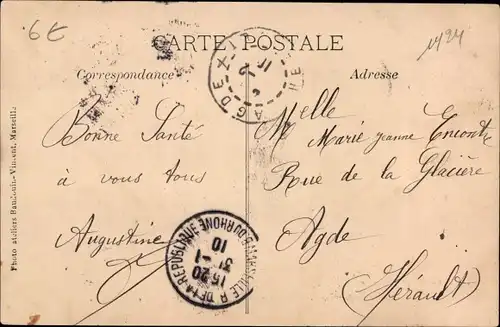 6€
CARTE POSTALE
Correspondance
Adresse
AGDE
Bonne Santé
à vous tous
Augustine
Melle
Marie Jeanne Encontre
Rue de la Glacière
Agde
(Hérault)
MARSEILLE R. DE LA REPUBLIQUE
BOUCHES DU RHONE
15 20
31 -1
10
Photo ateliers Baudouin-Vincent, Marseille